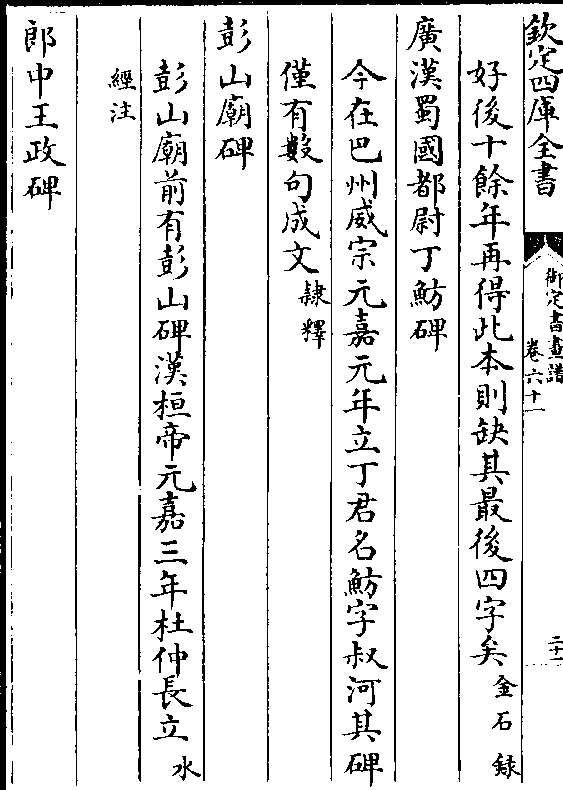 欽定四庫全書
御定書畫譜
卷六十一
二十一
好後十餘年再得此本則缺其最後四字矣金石錄
廣漢蜀國都尉丁魴碑
今在巴州威宗元嘉元年立丁君名魴字叔河其碑
僅有數句成文隸釋
彭山廟碑
彭山廟前有彭山碑漢桓帝元嘉三年杜仲長立水
經注
郎中王政碑